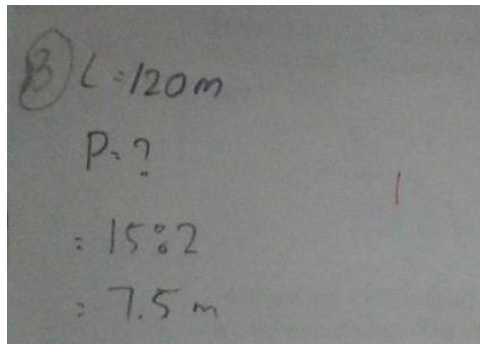 B L = 120 m
P = ?
= 15 : 2
= 7.5 m